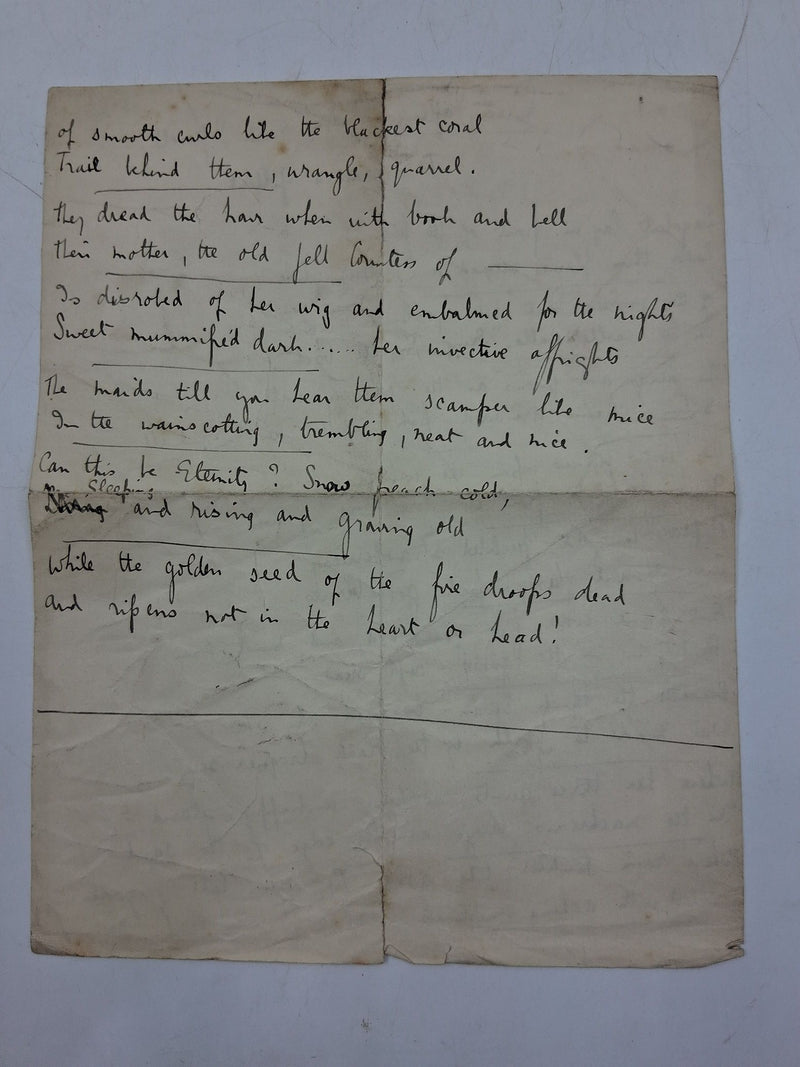 of smooth curls like the blackest coral
Trail behind them, wrangle, quarrel.
They dread the hour when with book and bell
their mother, the old fell Countess of ———
Is disrobed of her wig and embalmed for the nights
Sweet mummified dark...... her invective affrights
The maids till you hear them scamper like mice
In the wainscotting, trembling, neat and nice.
Can this be Eternity? Snow peach cold,
Sleeping and rising and growing old
while the golden seed of the fire droops dead
and ripens not in the heart or head!